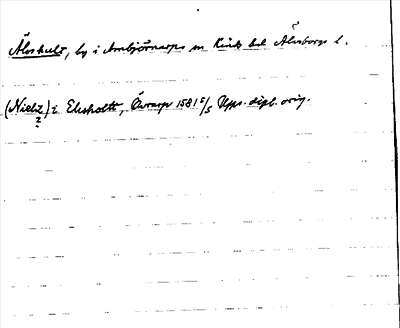 Älvshult, by i Ambjörnarps sn Kinds hd Älvsborgs l.
(Nielz) i Elsholtt, Övrarp 1581 5/5 Upps. dipl. orig.